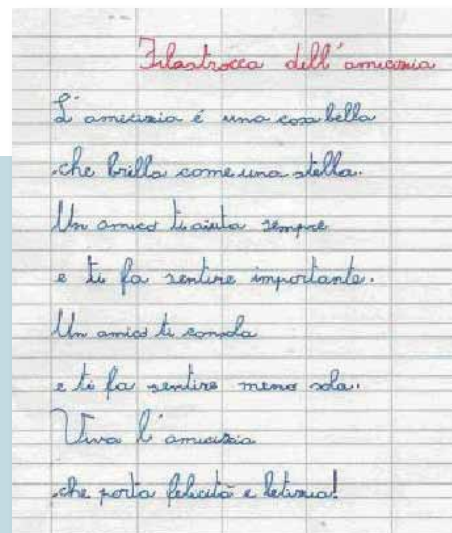 Filastrocca dell'amicizia
L'amicizia é una cosa bella
che brilla come una stella.
Un amico ti aiuta sempre
e ti fa sentire importante.
Un amico ti consola
e ti fa sentire meno sola.
Viva l'amicizia
che porta felicità e letizia!